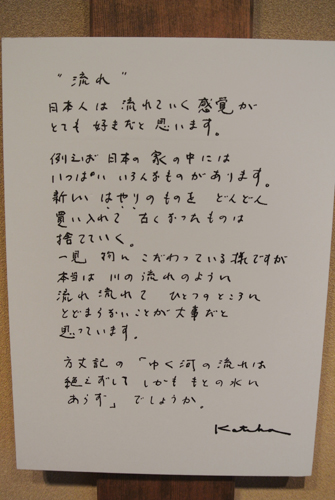 "流れ"
日本人は 流れていく 感覚が
とても 好きだと 思います。
例えば 日本の 家の中には
いっぱい いろんなものが あります。
新しい はやりのものを どんどん
買い入れて 古くなったものは
捨てていく。
一見 物に こだわっている 様ですが
本当は 川の 流れのように
流れ 流れて ひとつのところに
とどまらないことが 大事だと
思っています。
方丈記の 「ゆく河の流れは
絶えずして しかも もとの水に
あらず」 でしょうか。